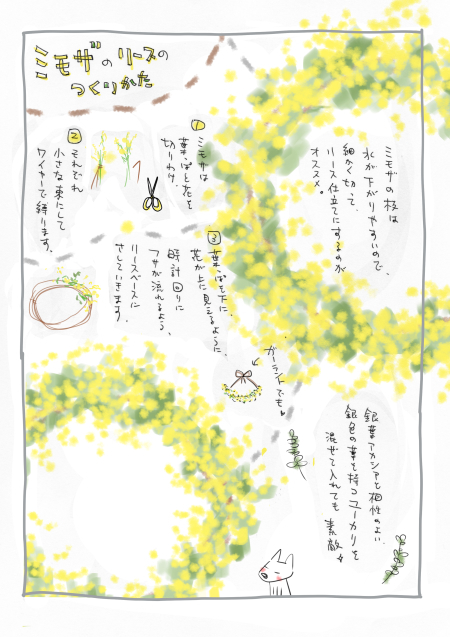 ミモザのリースの
つくりかた
ミモザの枝は
水が下がりやすいので、
細かく切って、
リース仕立てにするのが
オススメ。
1
ミモザは
葉っぱと花を
切りわけ、
2
それぞれ
小さな束にして
ワイヤーで縛ります。
3
葉っぱを下に、
花が上に見えるように、
時計回りに
フサが流れるよう、
リースベースに
さしていきます。
ガーランドでも
銀葉アカシアと相性のよい
銀色の葉を持つユーカリを
混ぜて入れても素敵